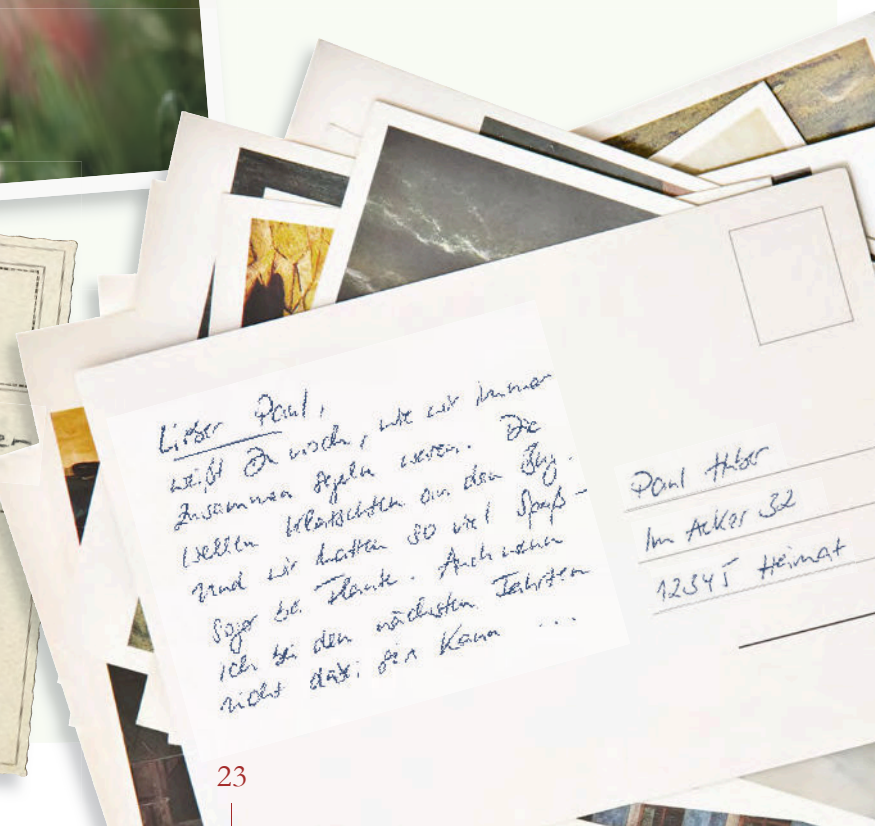 Lieber Paul,
weißt Du noch, wie wir immer
zusammen segeln waren. Die
Wellen klatschten an den Bug.
Und wir hatten so viel Spaß –
Sogar bei Flaute. Auch wenn
ich bei den nächsten Fahrten
nicht dabei sein kann ...
Paul Huber
Im Acker 32
12345 Heimat
23